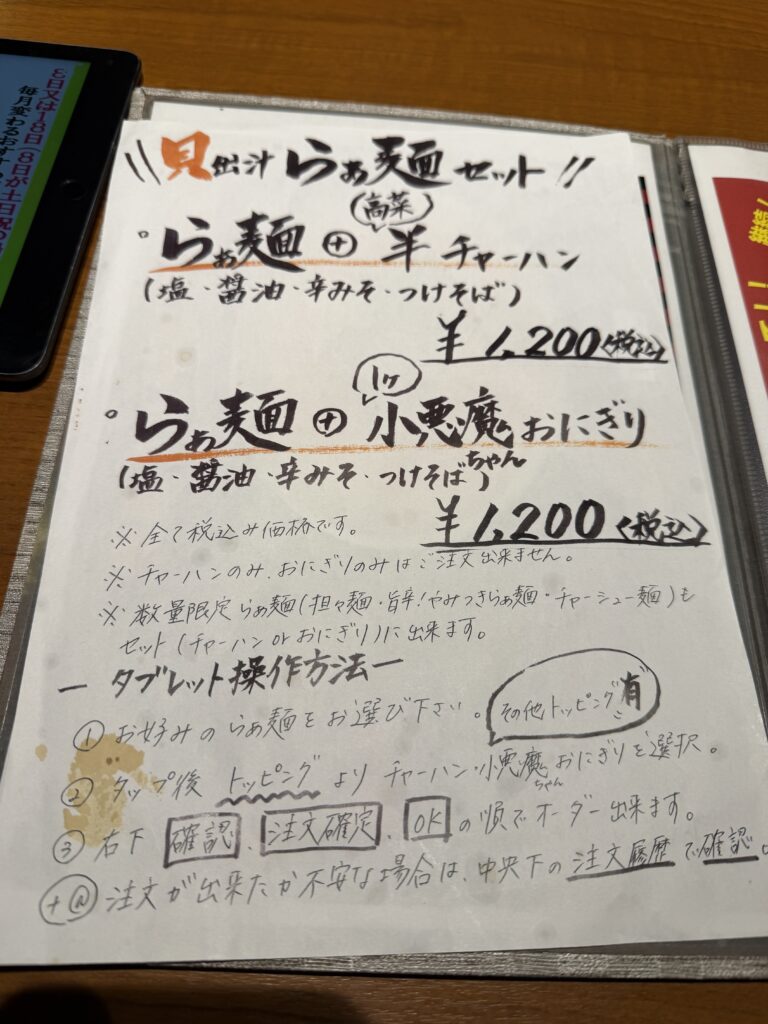 貝出汁 らぁ麺 セット!!
(高菜)
。らぁ麺 ⊕ 半チャーハン
(塩・醤油・辛みそ・つけそば)
¥1,200〈税込〉
1ヶ
。らぁ麺 ⊕ 小悪魔おにぎり
ちゃん
(塩・醤油・辛みそ・つけそば)
¥1,200〈税込〉
※全て税込み価格です。
※チャーハンのみ、おにぎりのみはご注文出来ません。
※数量限定らぁ麺(担々麺・旨辛!やみつきらぁ麺・チャーシュー麺)も
セット(チャーハン or おにぎり)に出来ます。
ー タブレット操作方法 ー
① お好みのらぁ麺をお選び下さい。
その他トッピング有
② タップ後 トッピング より チャーハン・小悪魔おにぎりを選択。
ちゃん
③ 右下 確認、注文確定、OK の順でオーダー出来ます。
+@ 注文が出来たか不安な場合は、中央下の注文履歴で確認
8日又は18日(8日が土日祝の
毎月変わるおすす